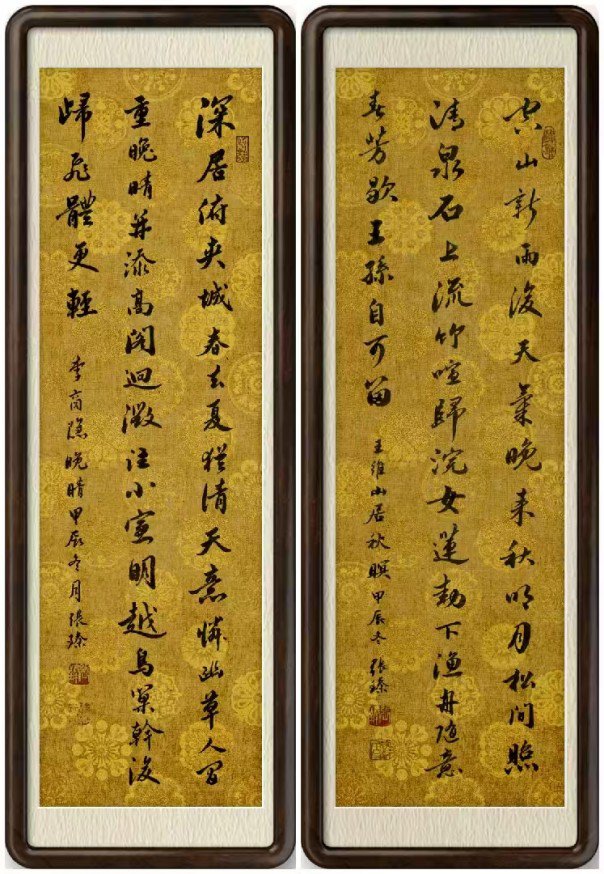 空山新雨後天氣晚来秋明月松间照
清泉石上流竹喧歸浣女蓮動下漁舟随意
春芳歇王孫自可留
王维山居秋暝甲辰冬張
深居俯夹城春去夏猶清天意憐幽草人间
重晚晴并添高阁迥微注小窗明越鳥巢幹後
歸飛體更輕
李商隐晚晴甲辰冬月張